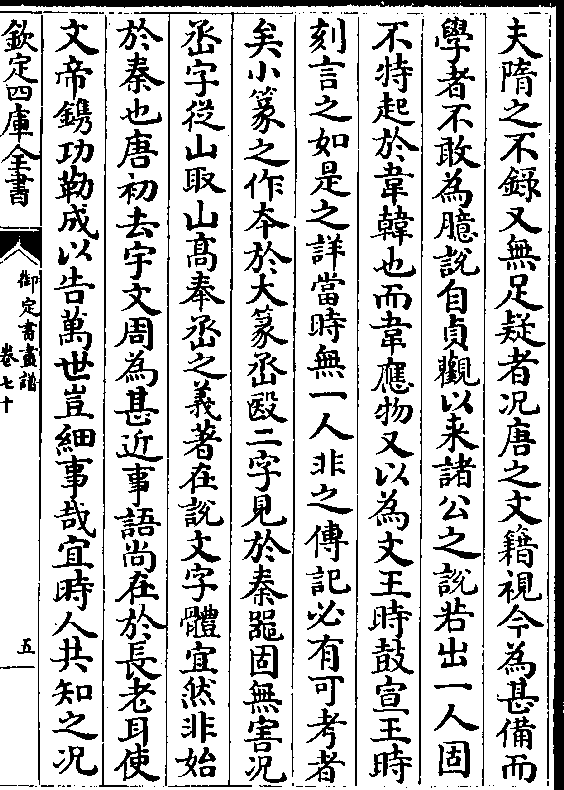 夫隋之不錄又無足疑者况唐之文籍視今為甚備而
學者不敢為臆説自貞觀以来諸公之説若出一人固
不特起於韋韓也而韋應物又以為文王時鼓宣王時
刻言之如是之詳當時無一人非之傳記必有可考者
矣小篆之作本於大篆丞殹二字見於秦器固無害况
丞字從山取山高奉丞之義著在説文字體宜然非始
於秦也唐初去宇文周為甚近事語尚在於長老耳使
文帝鐫功勒成以告萬世豈細事哉宜時人共知之况
欽定四庫全書
御定書畫譜
卷七十
五